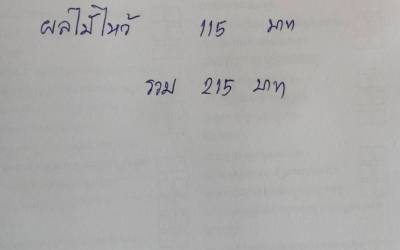 ผลไม้ไหว้ 115 บาท
รวม 215 บาท